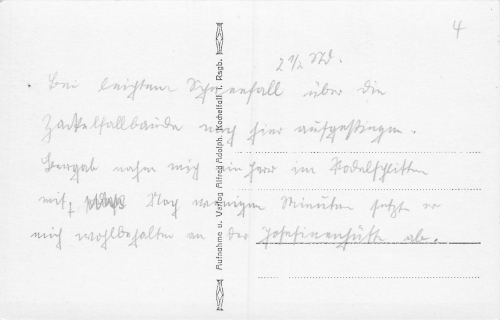 4
2½ Std.
Bei leichtem Schneefall über die
Zackelfallbaude nach hier aufgestiegen.
Bergab nahm mich ein Herr im Rodelschlitten
mit, Nach wenigen Minuten setzt er
mich wohlbehalten an der Josefinenhütte ab.
Aufnahme u. Verlag Alfred Adolph, Kochelfall i. Rsgb.